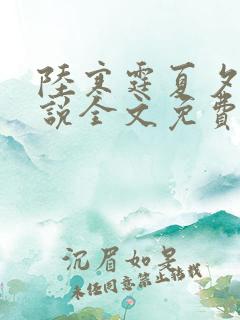 陸寒霆夏夕
說全文免費
沉眉如呆
未經同意禁止轉載